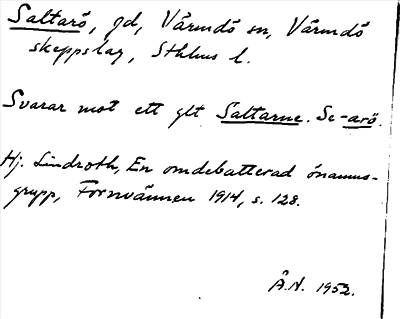 Saltarö, gd, Värmdö sn, Värmdö
skeppslag, Sthlms l.
Svarar mot ett glt Saltarne. Se -arö.
Hj. Lindroth, En omdebatterad önamns-
grupp, Fornvännen 1914, s. 128.
Å.N. 1952.